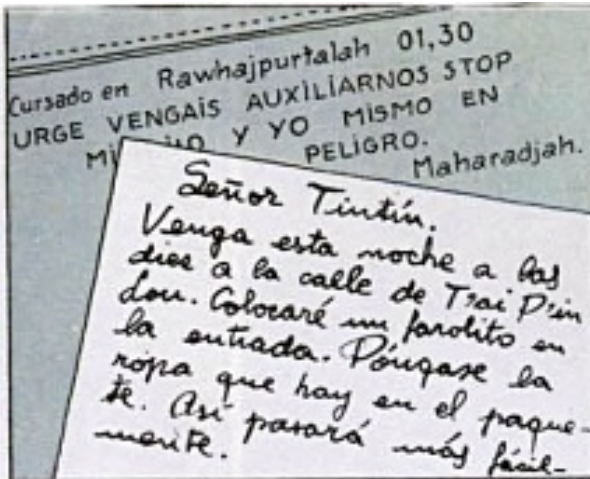 Cursado en Rawhajpurtalah 01,30
URGE VENGAIS AUXILIARNOS STOP
MI Y YO MISMO EN
PELIGRO.
Maharadjah.
Señor Tintín.
Venga esta noche a las
diez a la calle de T'ai P'in
Lou. Colocaré un farolito en
la entrada. Póngase la
ropa que hay en el paque-
te. Así pasará más fácil-
mente.